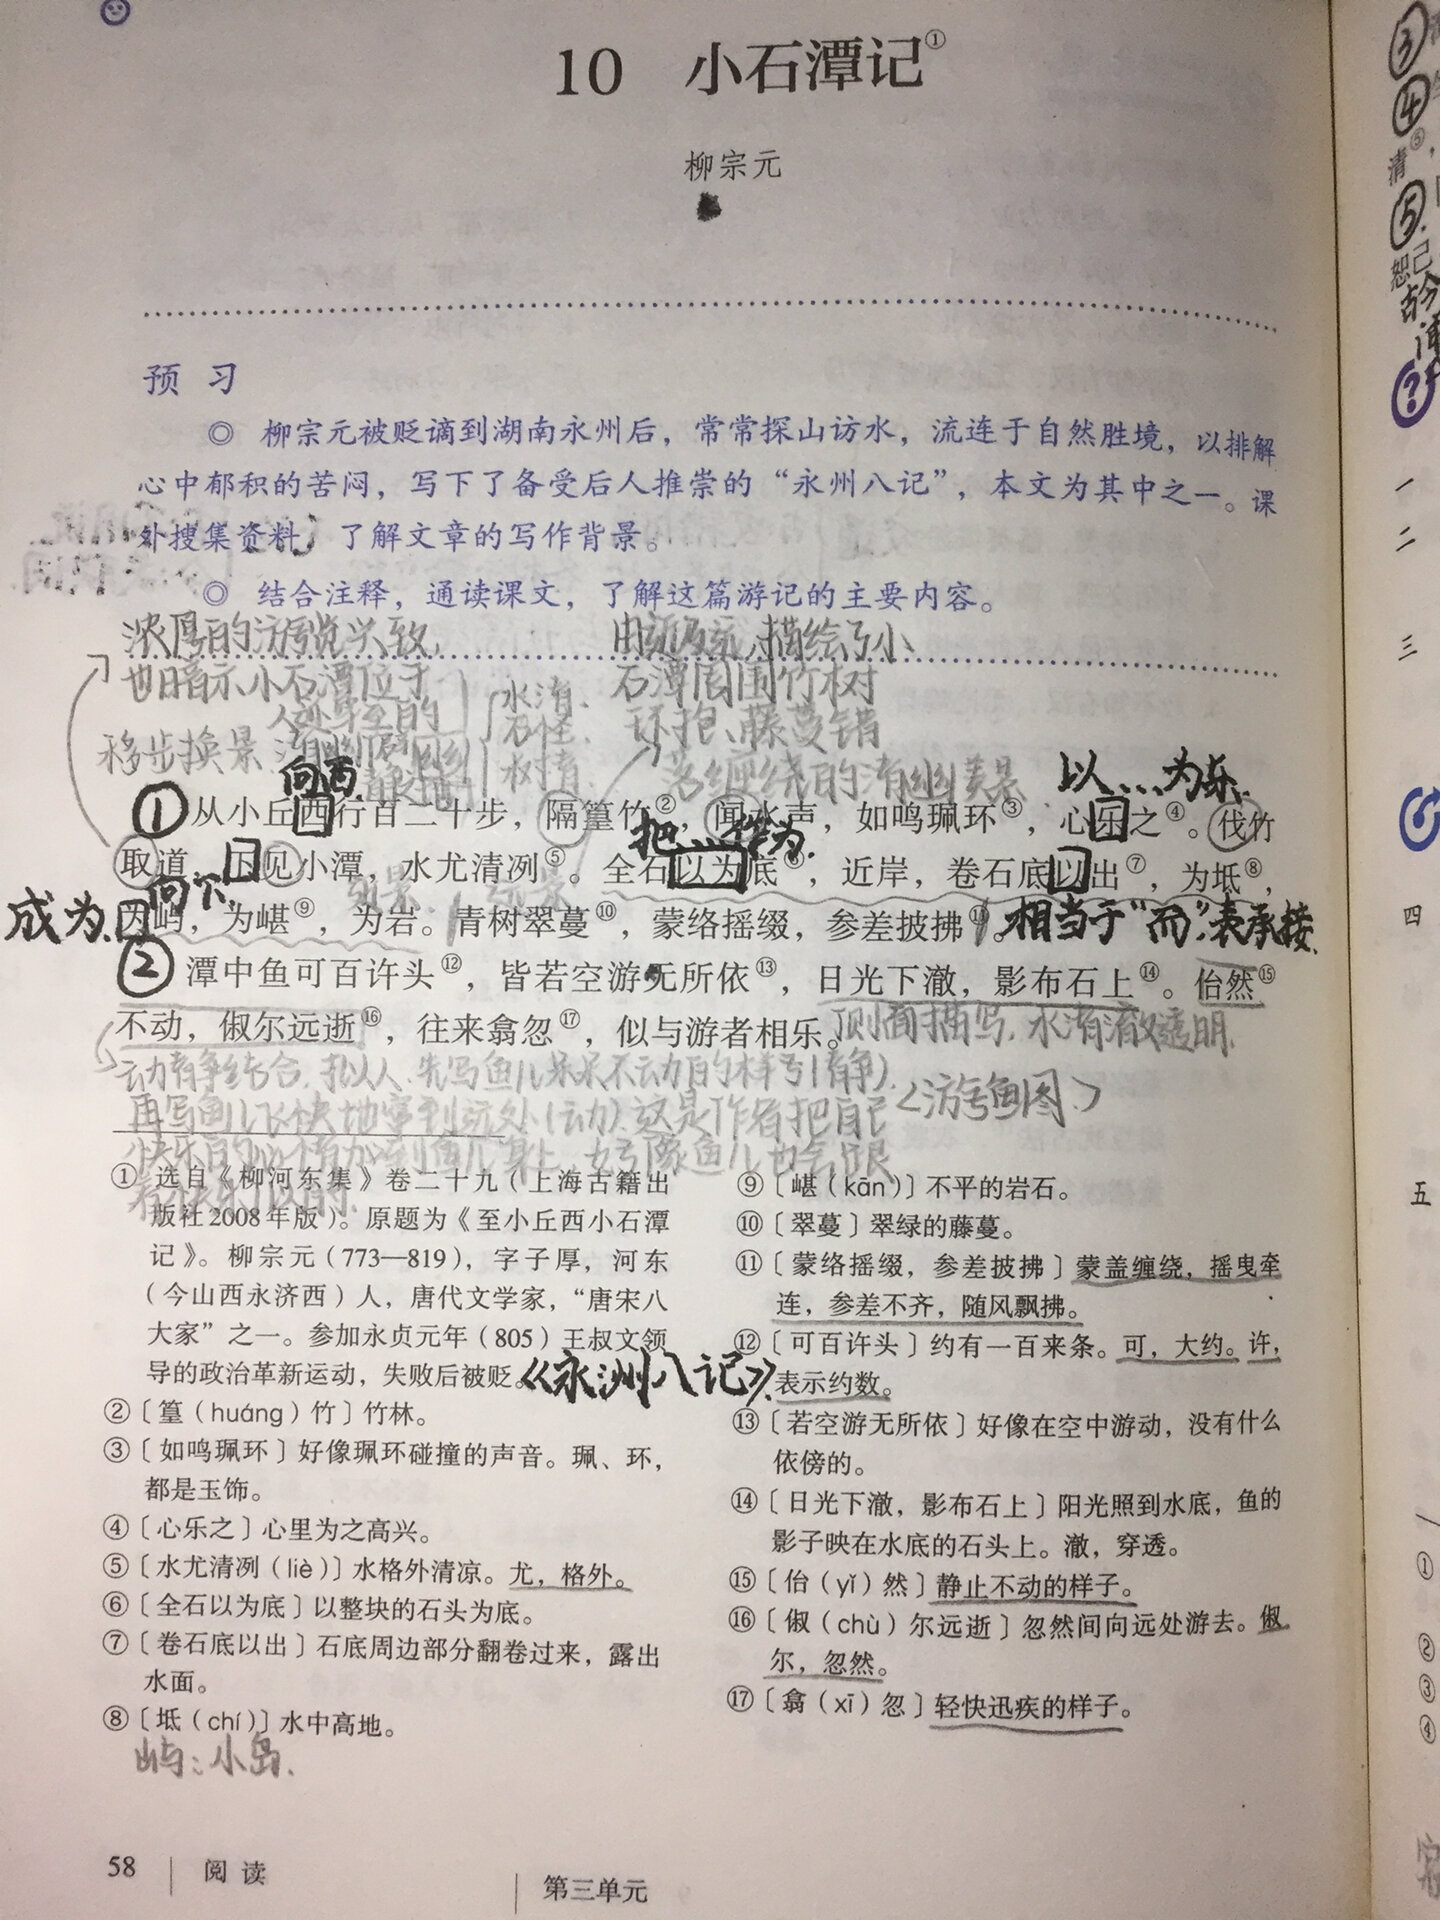 10 小石潭记①
柳宗元
预 习
◎ 柳宗元被贬谪到湖南永州后，常常探山访水，流连于自然胜境，以排解
心中郁积的苦闷，写下了备受后人推崇的“永州八记”，本文为其中之一。课
外搜集资料，了解文章的写作背景。
◎ 结合注释，通读课文，了解这篇游记的主要内容。
浓厚的游览兴致，
也暗示小石潭位于
移步换景
水清、
石怪、
树青、
描绘了小
石潭周围竹树
环抱、藤蔓错
落缠绕的清幽美景
向西
以……为乐、
①从小丘西行百二十步，隔篁竹②，闻水声，如鸣珮环③，心乐之④。伐竹
把…作为、
取道，下见小潭，水尤清冽⑤。全石以为底⑥，近岸，卷石底以出⑦，为坻⑧，
成为、
向下、
为屿，为嵁⑨，为岩。青树翠蔓⑩，蒙络摇缀，参差披拂⑪。
相当于“而”，表承接、
②潭中鱼可百许头⑫，皆若空游无所依⑬，日光下澈，影布石上⑭。佁然⑮
不动，俶尔远逝⑯，往来翕忽⑰，似与游者相乐。
侧面描写，水清澈透明、
动静结合，拟人、先写鱼儿呆呆不动的样子（静）、
再写鱼儿飞快地窜到远处（动）、这是作者把自己
〈游鱼图〉
快乐的心情加到鱼儿身上，好像鱼儿也
① 选自《柳河东集》卷二十九（上海古籍出
版社2008年版）。原题为《至小丘西小石潭
记》。柳宗元（773—819），字子厚，河东
（今山西永济西）人，唐代文学家，“唐宋八
大家”之一。参加永贞元年（805）王叔文领
导的政治革新运动，失败后被贬。
《永洲八记》、
②〔篁（huáng）竹〕竹林。
③〔如鸣珮环〕好像珮环碰撞的声音。珮、环，
都是玉饰。
④〔心乐之〕心里为之高兴。
⑤〔水尤清冽（liè）〕水格外清凉。尤，格外。
⑥〔全石以为底〕以整块的石头为底。
⑦〔卷石底以出〕石底周边部分翻卷过来，露出
水面。
⑧〔坻（chí）〕水中高地。
屿：小岛、
⑨〔嵁（kān）〕不平的岩石。
⑩〔翠蔓〕翠绿的藤蔓。
⑪〔蒙络摇缀，参差披拂〕蒙盖缠绕，摇曳牵
连，参差不齐，随风飘拂。
⑫〔可百许头〕约有一百来条。可，大约。许，
表示约数。
⑬〔若空游无所依〕好像在空中游动，没有什么
依傍的。
⑭〔日光下澈，影布石上〕阳光照到水底，鱼的
影子映在水底的石头上。澈，穿透。
⑮〔佁（yǐ）然〕静止不动的样子。
⑯〔俶（chù）尔远逝〕忽然间向远处游去。俶
尔，忽然。
⑰〔翕（xī）忽〕轻快迅疾的样子。
58 阅读
第三单元
③
④
清⑤，
⑤
恕己
一
二
三
四
五
①
②
③
④